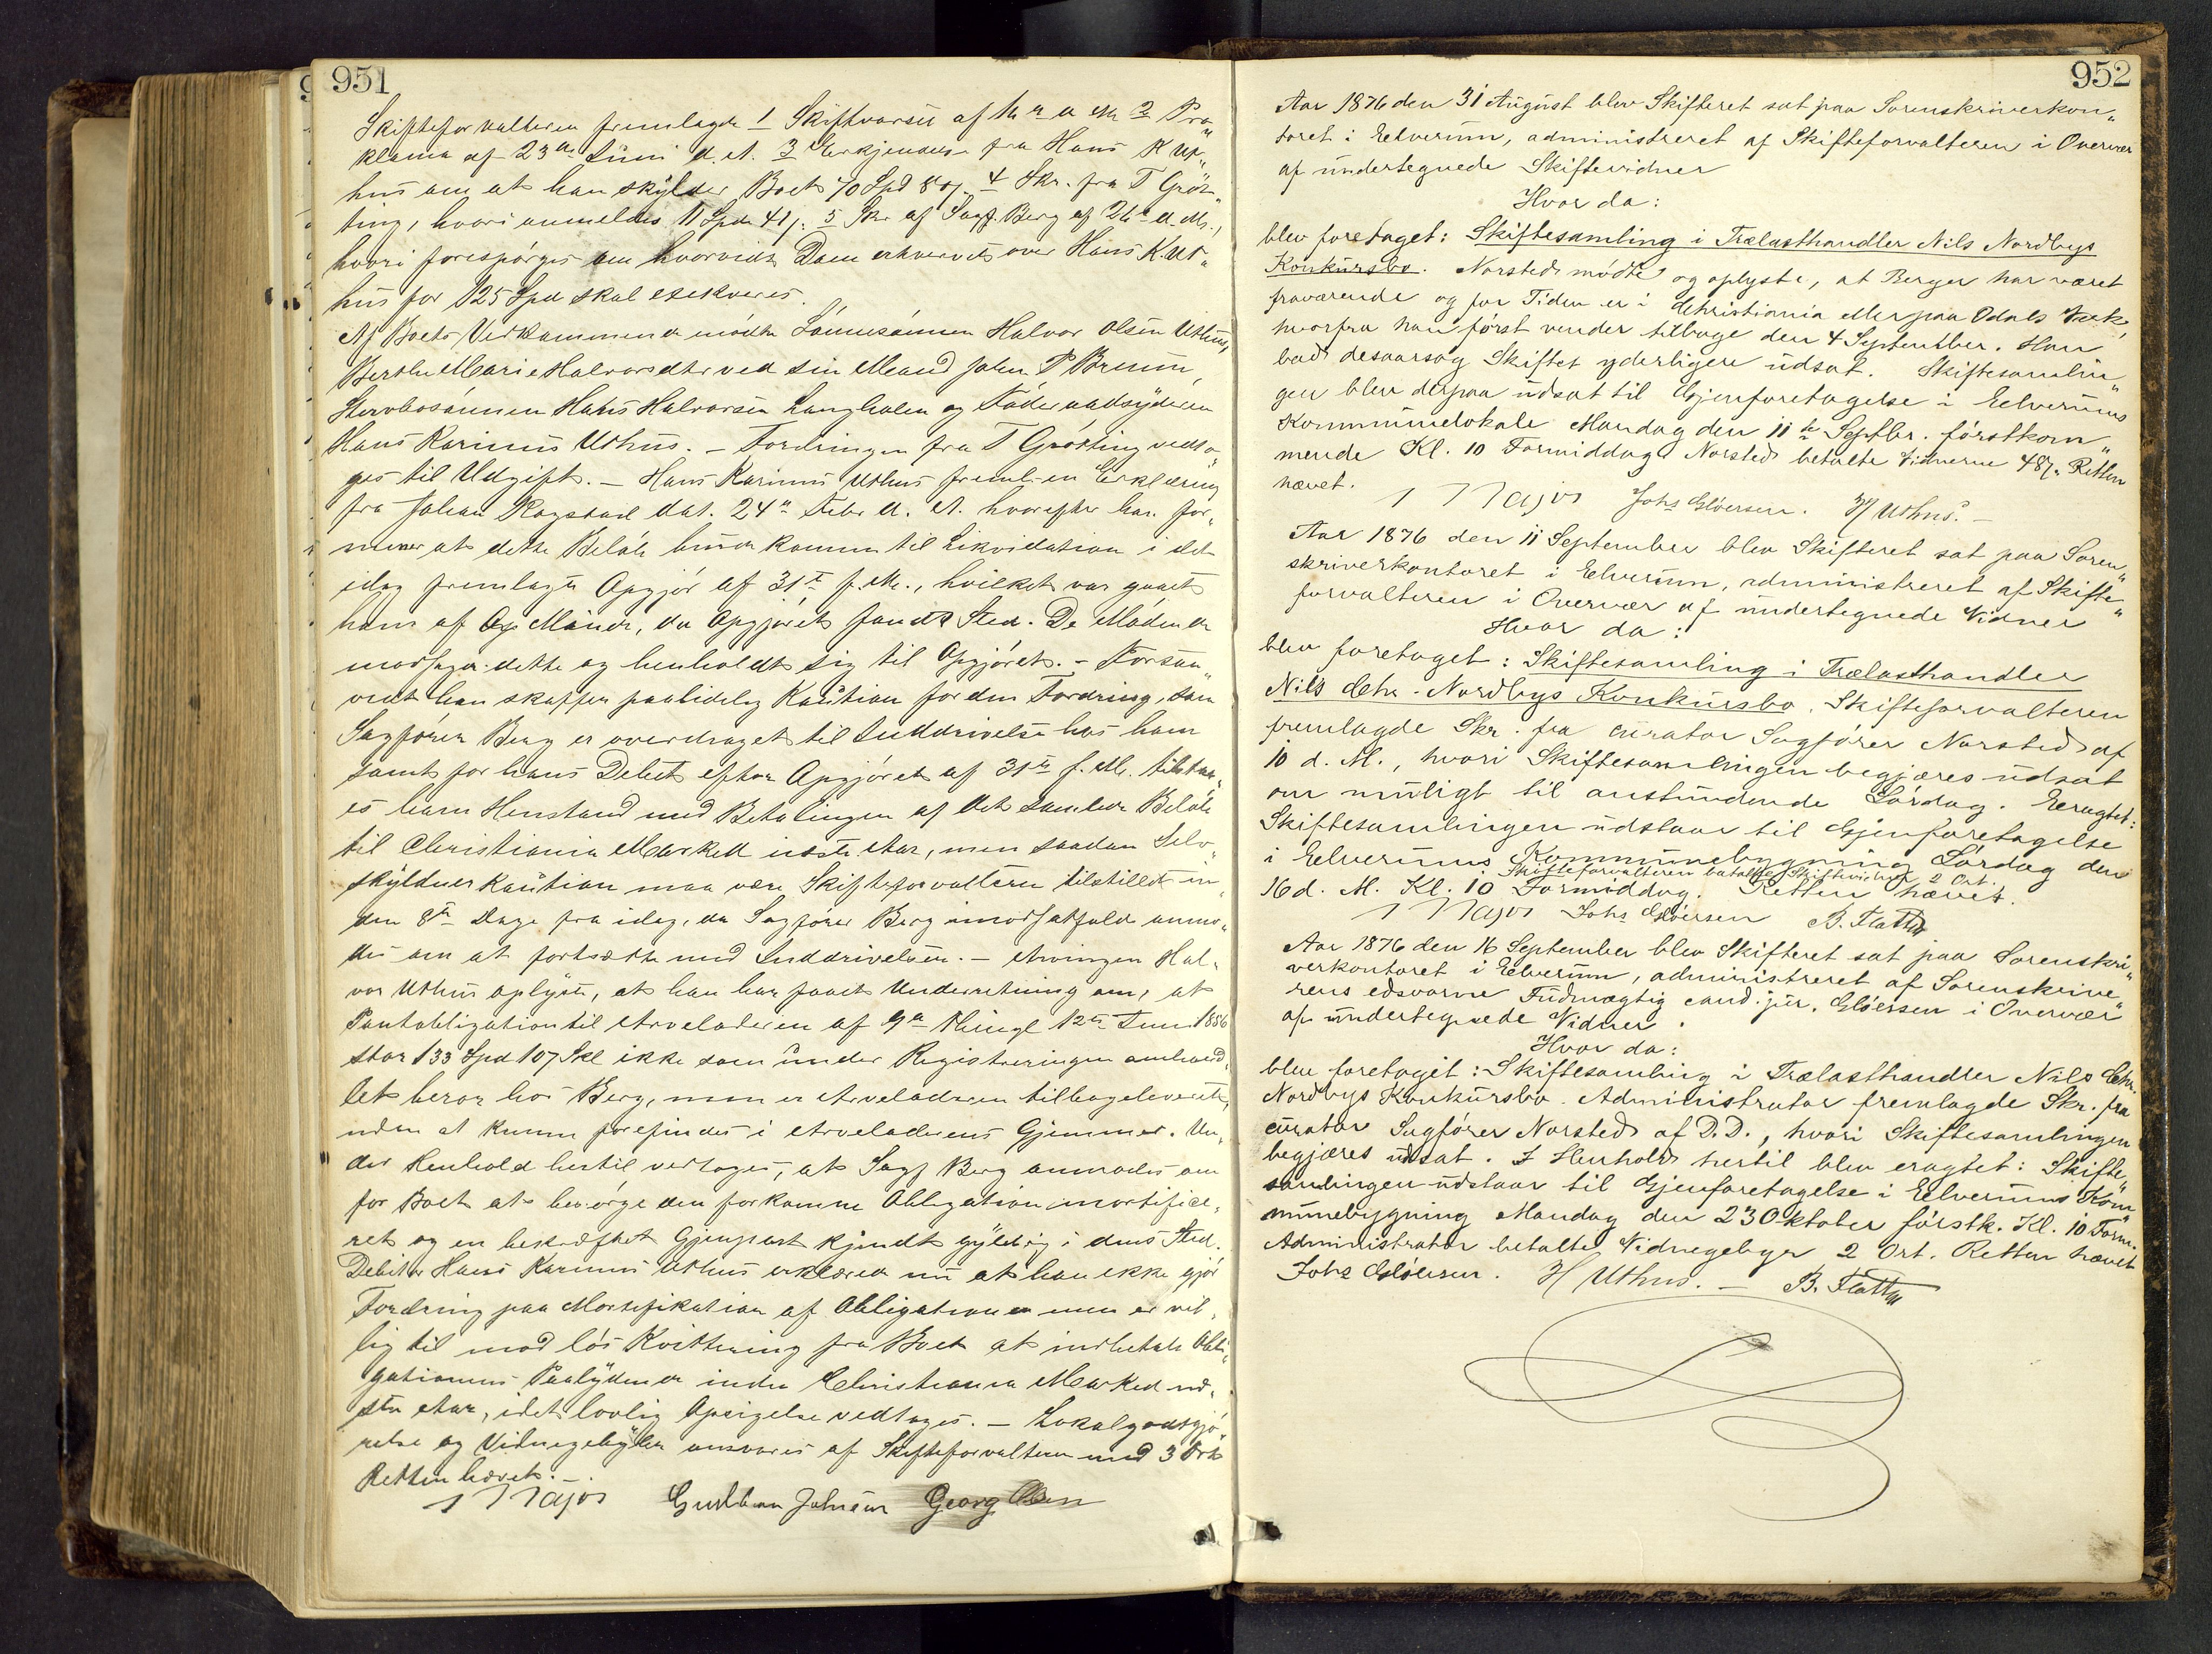 951
Skifteforvalteren fremlagde 1 Skiftvarsel af 2 Pro„
klama af 23de Juni d. A. 3 Erkjendelse fra Hans K Ut„
hus om at han skylder Boet 70 Spd 4 Skr. fra T Grøt„
ting, hvori anmeldes 11 Spd 41 5 Skr af Sagf. Berg af 26 d. M.,
hvori forespørges om hvorvidt Dom erhvervet over Hans K. Ut„
hus for 125 Spd skal exekveres.
Af Boets Vedkommende mødte Sønnesønnen Halvor Olsen Uthus,
Berthe Marie Halvorsdtr ved sin Mand Johan P Brenn,
Stervbosønnen Hans Halvorsen Langholen og Føderaadsyderen
Hans Karinus Uthus. – Fordringen fra T Grøtting vedto„
ges til Udgift. – Hans Karinus Uthus freml. en Erklæring
fra Johan Rogstad dat. 24de Febr d. A. hvorefter han for„
mener at dette Beløb burde komme til Likvidation i det
idag fremlagte Opgjør af 31te f. M., hvilket var gaaet
ham af Minde, da Opgjøret fandt Sted. De Mødende
modsagde dette og henholdt sig til Opgjøret. – Forsaa„
vidt han skaffer paalidelig Kaution for den Fordring, som
Sagfører Berg er overdraget til Inddrivelse hos ham
samt for hans Debet efter Opgjøret af 31te f. M. tilstaa„
es ham Henstand med Betalingen af det samlede Beløb
til Christiania Marked næste Aar, men saadan Selv„
skyldnerkaution maa være Skifteforvalteren tilstillet in„
den 8te Dage fra idag, da Sagfører Berg i modsatfald anmo„
des om at fortsætte med Inddrivelsen. – Arvingen Hal„
vor Uthus oplyste, at han har faaet Underretning om, at
Pantobligation til Arveladeren af 9de thingl 12te Juni 1856
stor 133 Spd 107 Skl ikke som under Registreringen omhand„
let beror hos Berg, men er Arveladeren tilbageleveret,
uden at kunne forefindes i Arveladerens Gjemmer. Un„
der Henhold hertil vedtoges, at Sagf Berg anmodes om
for Boet at besørge den forkomne Obligation mortifice„
ret og en bekræftet Gjenpart kjendt gyldig i dens Sted.
Debitor Hans Karinus Uthus erklærede nu at han ikke gjør
Fordring paa Mortifikation af Obligationen men er vil„
lig til mod løs Kvittering fra Boet at indbetale Obli„
gationens Paalydende inden Christiania Marked næ„
ste Aar, idet lovlig Opsigelse vedtages. – Lokalgodtgjø„
relse og Vidnegebyhr ansvares af Skifteforvalteren med 3 Ort
Retten hævet. –
Major Gulbran Johnsen Georg Olsen
952
Aar 1876 den 31 August blev Skifteret sat paa Sorenskriverkon„
toret i Eelverum, administreret af Skifteforvalteren i Overvær
af undertegnede Skiftevidner
Hvor da:
blev foretaget: Skiftesamling i Trælasthandler Nils Nordbys
Konkursbo. Norsted mødte og oplyste, at Berger har været
fraværende og for Tiden er i Christiania eller paa Odals Værk,
hvorfra han først vender tilbage den 4 September. Han
bad desaarsag Skiftet yderligere udsat. Skiftesamlin„
gen blev derpaa udsat til Gjenforetagelse i Eelverums
Kommunelokale Mandag den 11te Septbr. førstkom„
mende Kl. 10 Formiddag Norsted betalte Vidnerne 48/. Retten
hævet.
Major Johs Gløersen. H Uthus. –
Aar 1876 den 11 September blev Skifteret sat paa Soren„
skriverkontoret i Eelverum, administreret af Skifte„
forvalteren i Overvær af undertegnede Vidner
Hvor da:
blev foretaget: Skiftesamling i Trælasthandler
Nils Chr. Nordbys Konkursbo. Skifteforvalteren
fremlagde Skr. fra curator Sagfører Norsted af
10 d. M., hvori Skiftesamlingen begjæres udsat
om muligt til anstundende Lørdag. Eeragtet:
Skiftesamlingen udstaar til Gjenforetagelse
i Eelverums Kommunebygning Lørdag den
Skifteforvalteren betalte Skiftevidner 2 Ort.
16 d. M. Kl. 10 Formiddag. Retten hævet.
Major Johs Gløersen B. Flatten
Aar 1876 den 16 September blev Skifteret sat paa Sorenskri„
verkontoret i Eelverum, administreret af Sorenskrive„
rens edsvorne Fuldmægtig cand. jur. Gløersen i Overvær
af undertegnede Vidner.
Hvor da:
blev foretaget: Skiftesamling i Trælasthandler Nils Chr.
Nordbys Konkursbo. Administrator fremlagde Skr. fra
curator Sagfører Norsted af D. D., hvori Skiftesamlingen
begjæres udsat. I Henhold hertil blev eragtet: Skifte„
samlingen udstaar til Gjenforetagelse i Eelverums Kom„
munebygning Mandag den 23 Oktober førstk. Kl. 10 Form.
Administrator betalte Vidnegebyr 2 Ort. Retten hævet
Johs Gløersen. H Uthus. – B. Flatten